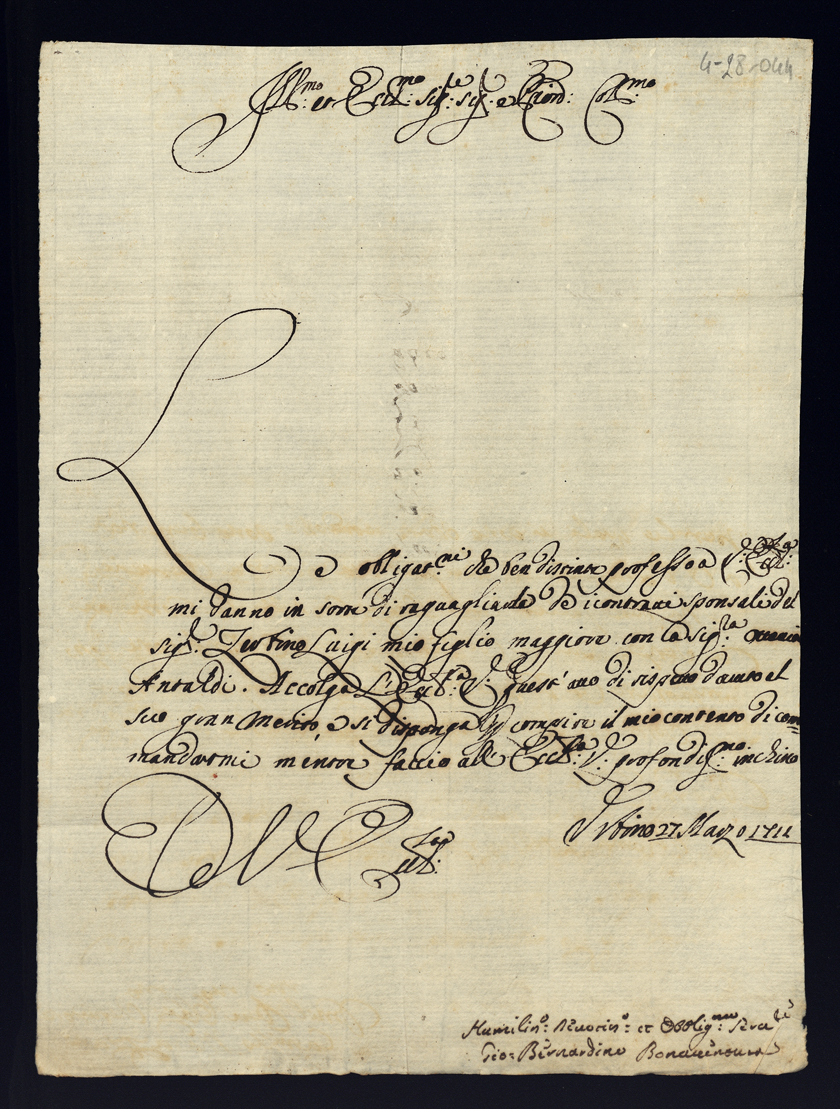 4-28-044
Ill.mo et Ecc.mo Sig.re Sig.r e Pron: Col.mo
Le obligat.ni che ben distinte professo a V: Ecc:za
mi danno in sorte di raguagliarla de i contratti sponsali del
sig.r Urbino Luigi mio figlio maggiore con la Sig.ra
Antaldi. Accolga L'Ecc.za V.ra quest'atto di rispetto dovuto al
suo gran merito, e si disponga compire il mio contento di com=
mandarmi mentre faccio all' Ecc.za V.ra profondiss.mo inchino
D V E
cc:za
Urbino 27 Marzo 1711
Humiliss.o: Devotiss:o et Obblig.mo Serv.re
Gio: Bernardino Bonaventura